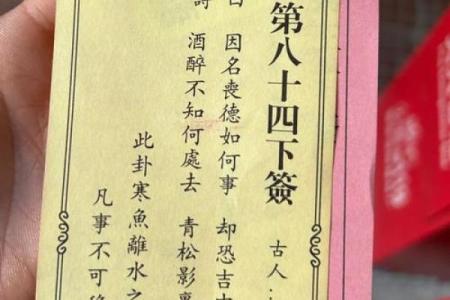 第八十四下簽
古人
曰 因名喪德如何事 却恐吉
詩 酒醉不知何處去 青松影
此卦寒魚離水之
凡事不可